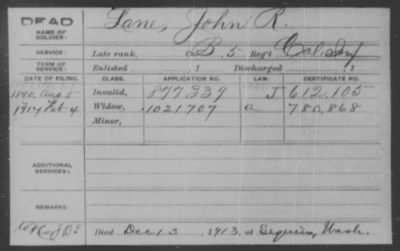 DEAD
NAME OF HOLDER: Lane, John R.
SERVICE: Late rank, Co B. 5 Reg't Cal. Inf
TERM OF SERVICE: Enlisted , 1 Discharged , 1
DATE OF FILING. CLASS. APPLICATION NO. LAW. CERTIFICATE NO.
1890 Aug 5 Invalid, 877339 J 612,105
1914 Feb 4 Widow, 1021707 a 780,868
Minor,
ADDITIONAL SERVICES:
REMARKS:
Died Dec 13 1913, at Sequim, Wash.